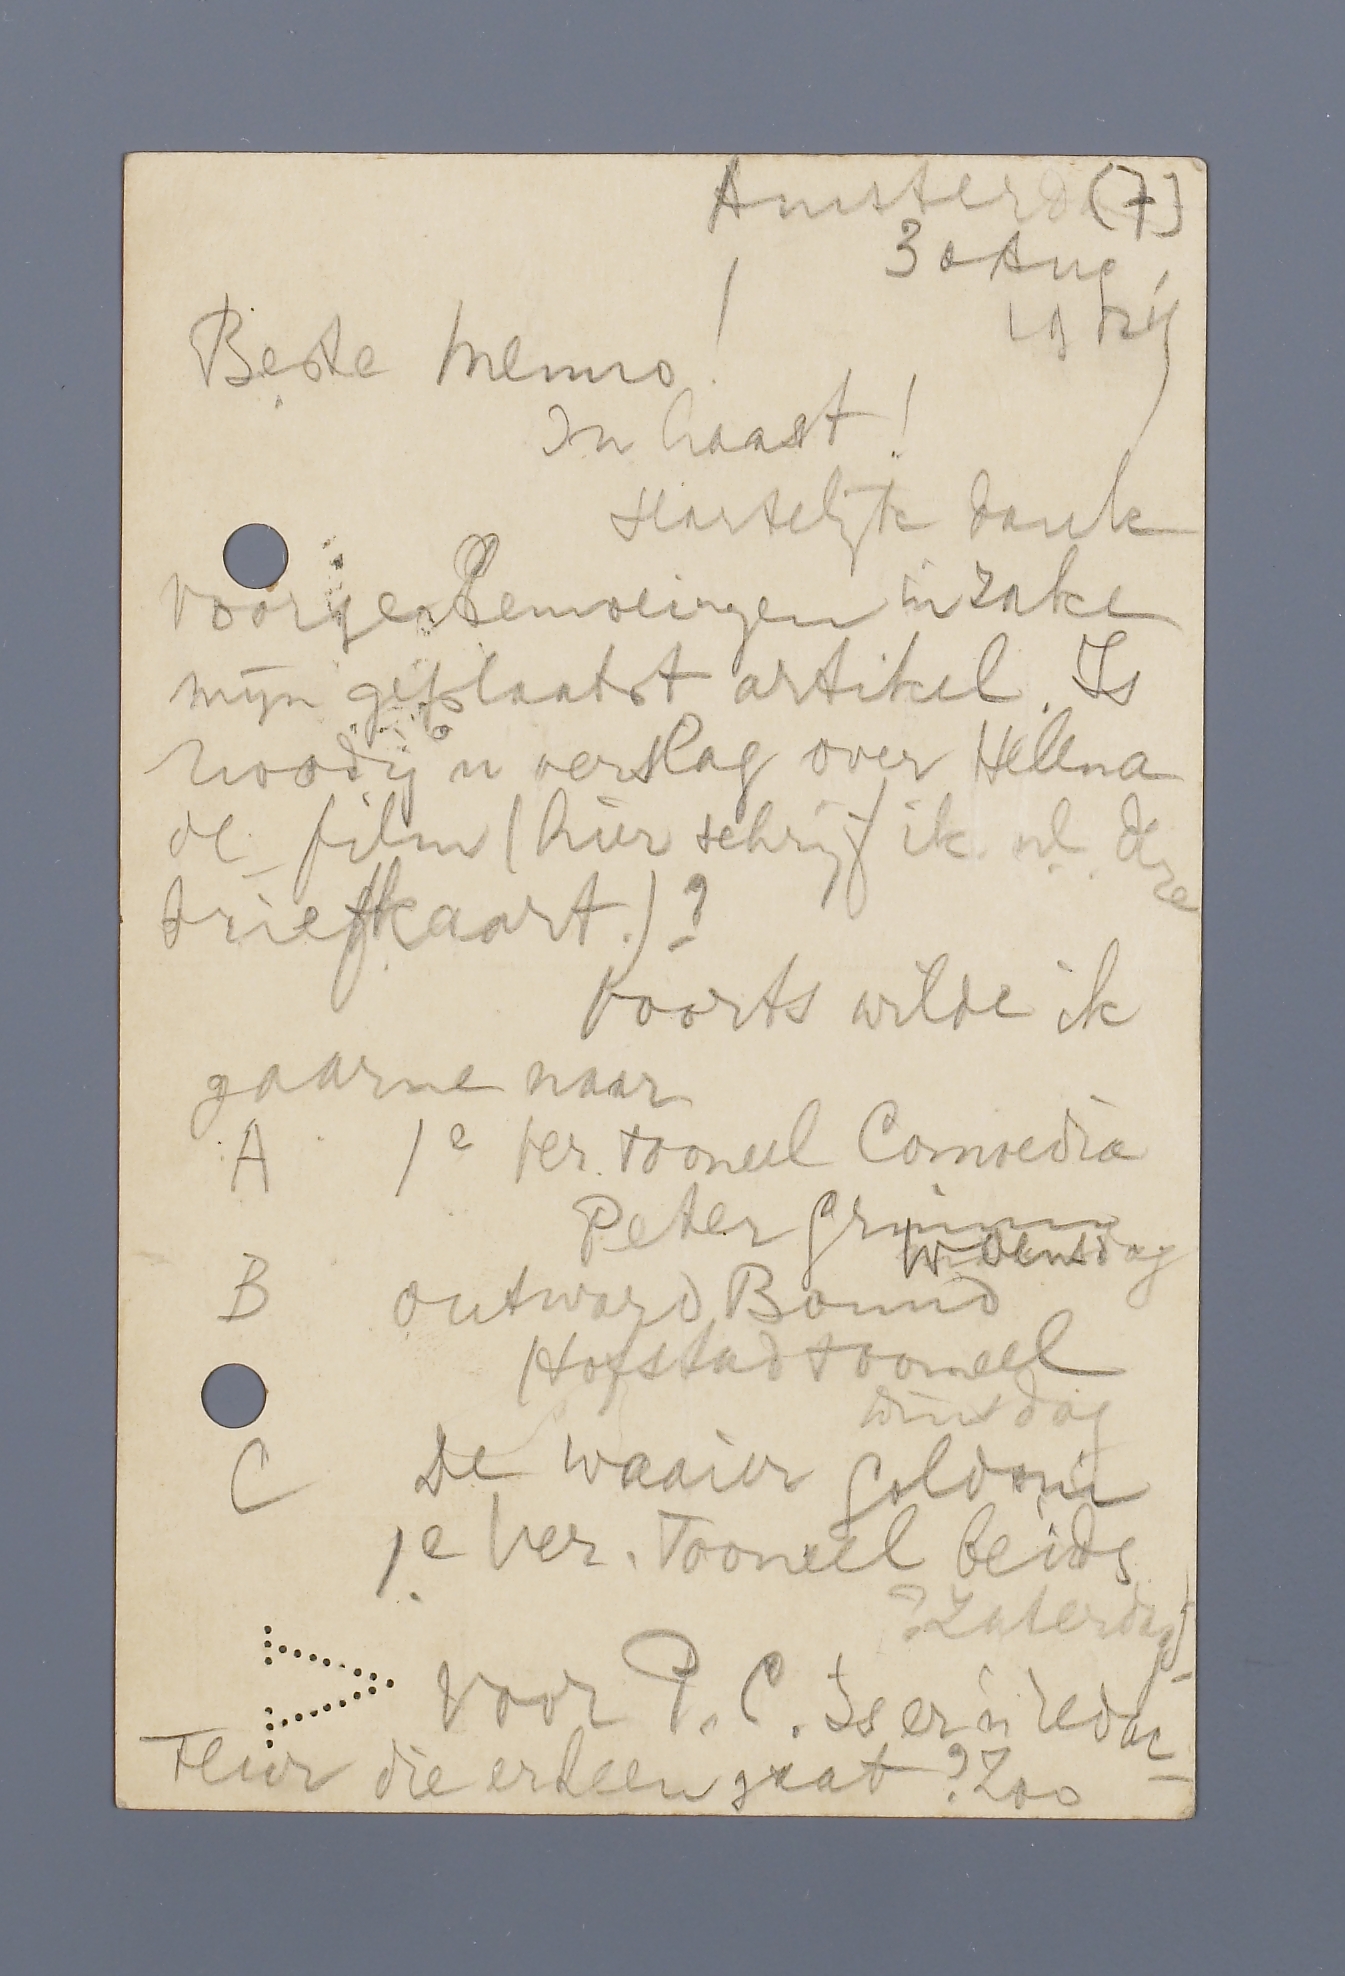 Amsterda (7]
30 Aug
Beste Menno!
In haast!
Hartelijk dank
voor je bemoeiingen inzake
mijn geplaatst artikel. Is
noodig 'n verslag over Helena
de film (hier schrijf ik nl. deze
briefkaart.)?
Voorts wilde ik
gaarne naar
A 1e Ver. tooneel Comoedia
Peter Grimm
Woensdag
B Outward Bound
Hofstadtooneel
Dinsdag
C De waaier Goldoni
1e Ver. Tooneel beids
? Zaterdag
Voor P. C. Is er 'n redac-
teur die erheen gaat? Zoo